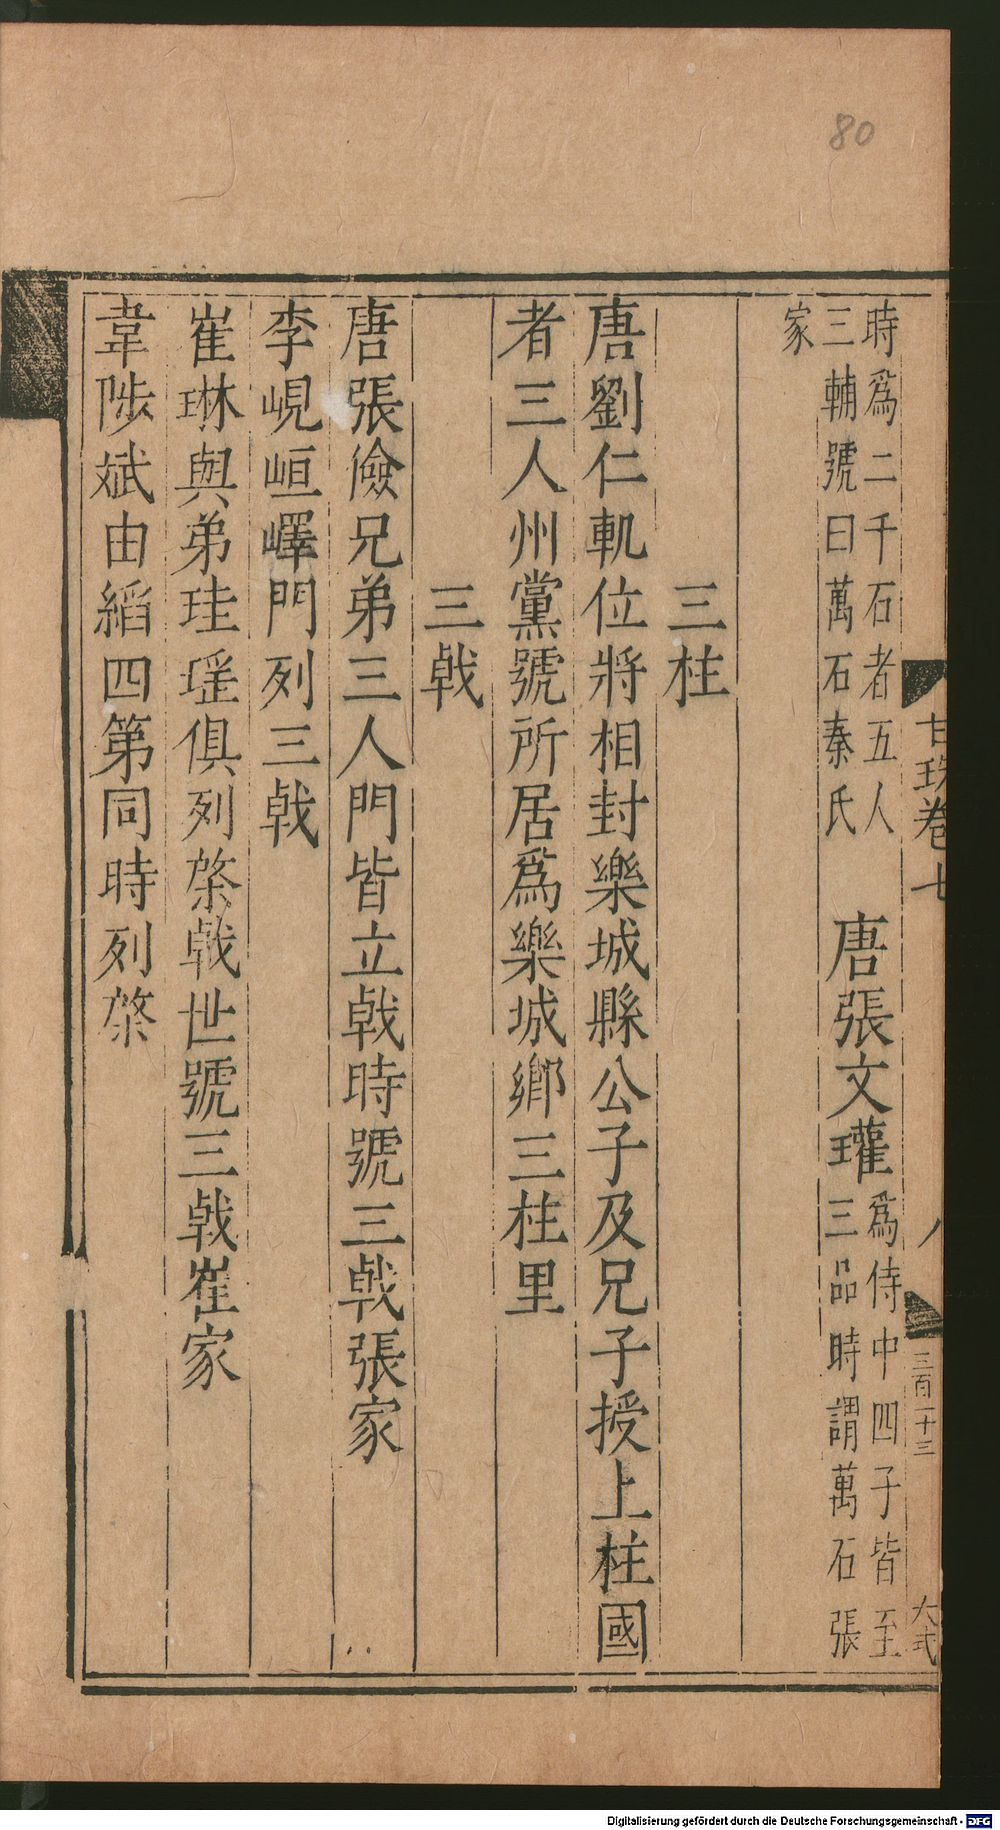 80
甘珠卷七
八
三百二十三
大式
時爲二千石者五人
三輔號曰萬石秦氏
唐張文瓘
爲侍中四子皆至
三品時謂萬石張
家
三柱
唐劉仁軌位將相封樂城縣公子及兄子授上柱國
者三人州黨號所居爲樂城鄉三柱里
三戟
唐張儉兄弟三人門皆立戟時號三戟張家
李峴峘嶧門列三戟
崔琳與弟珪瑤俱列棨戟世號三戟崔家
韋陟斌由縚四第同時列棨
Digitalisierung gefördert durch die Deutsche Forschungsgemeinschaft - DFG